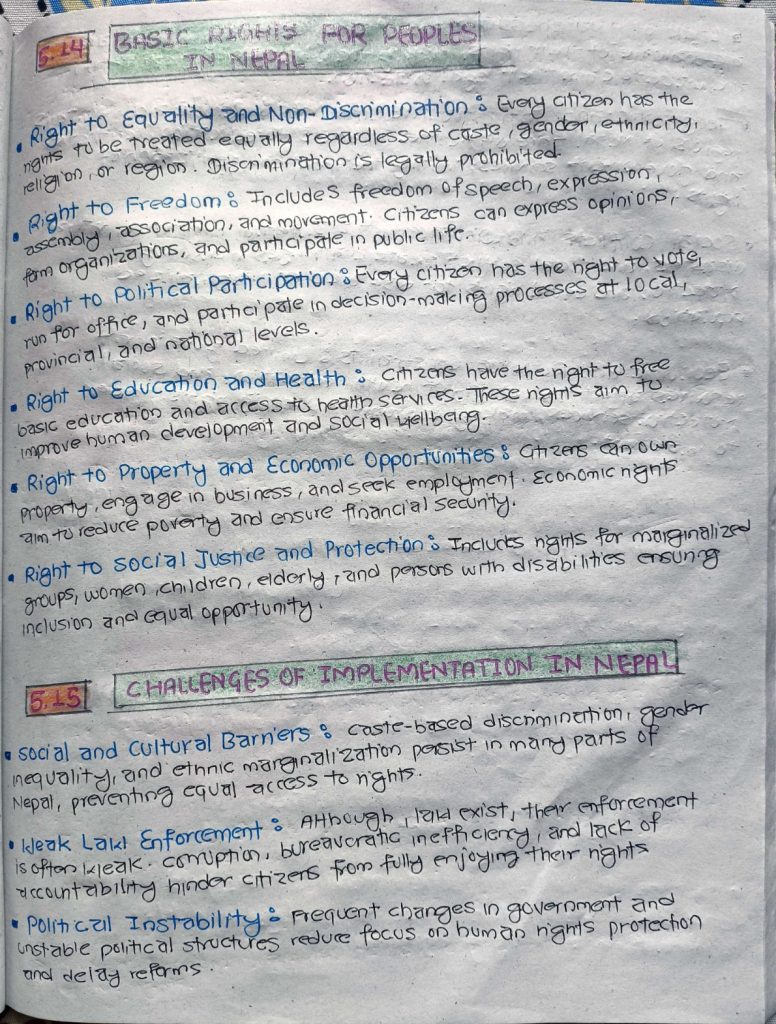 5.14 BASIC RIGHTS FOR PEOPLES
IN NEPAL
• Right to Equality and Non-Discrimination : Every citizen has the
rights to be treated equally regardless of caste, gender, ethnicity,
religion, or region. Discrimination is legally prohibited.
• Right to Freedom : Includes freedom of speech, expression,
assembly, association, and movement. Citizens can express opinions,
form organizations, and participate in public life.
• Right to Political Participation : Every citizen has the right to vote,
run for office, and participate in decision-making processes at local,
provincial, and national levels.
• Right to Education and Health : Citizens have the right to free
basic education and access to health services. These rights aim to
improve human development and social wellbeing.
• Right to Property and Economic Opportunities : Citizens can own
property, engage in business, and seek employment. Economic rights
aim to reduce poverty and ensure financial security.
• Right to Social Justice and Protection : Includes rights for marginalized
groups, women, children, elderly, and persons with disabilities ensuring
inclusion and equal opportunity.
5.15 CHALLENGES OF IMPLEMENTATION IN NEPAL
• Social and Cultural Barriers : Caste-based discrimination, gender
inequality, and ethnic marginalization persist in many parts of
Nepal, preventing equal access to rights.
• Weak Law Enforcement : Although, law exist, their enforcement
is often weak. corruption, bureaucratic inefficiency, and lack of
accountability hinder citizens from fully enjoying their rights
• Political Instability : Frequent changes in government and
unstable political structures reduce focus on human rights protection
and delay reforms.